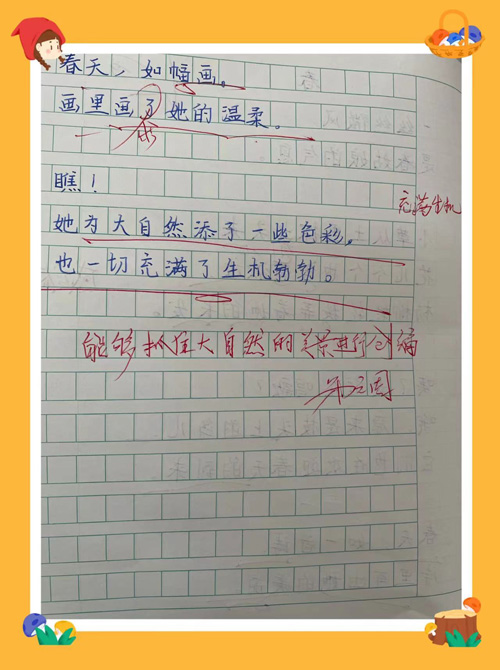 春天，如幅画。
画里画了她的温柔。
成
瞧！
充满生机
她为大自然添了一些色彩，
也一切充满了生机勃勃。
能够抓住大自然的美景进行创编